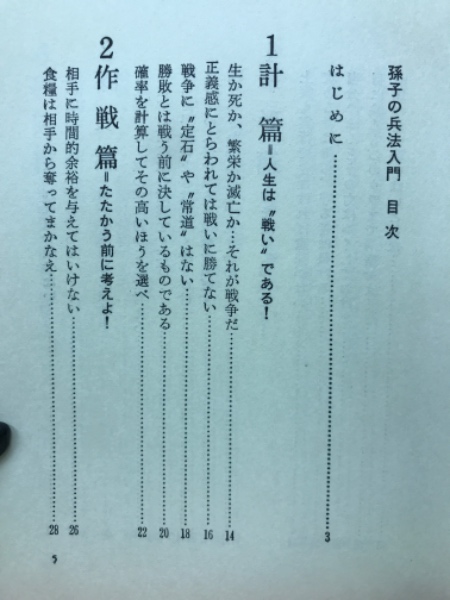 孫子の兵法入門 目次
はじめに……………………3
1 計篇=人生は〝戦い〟である!
生か死か、繁栄か滅亡か…それが戦争だ……………………14
正義感にとらわれては戦いに勝てない……………………16
戦争に〝定石〟や〝常道〟はない……………………18
勝敗とは戦う前に決しているものである……………………20
確率を計算してその高いほうを選べ……………………22
2 作戦篇=たたかう前に考えよ!
相手に時間的余裕を与えてはいけない……………………26
食糧は相手から奪ってまかなえ……………………28
5